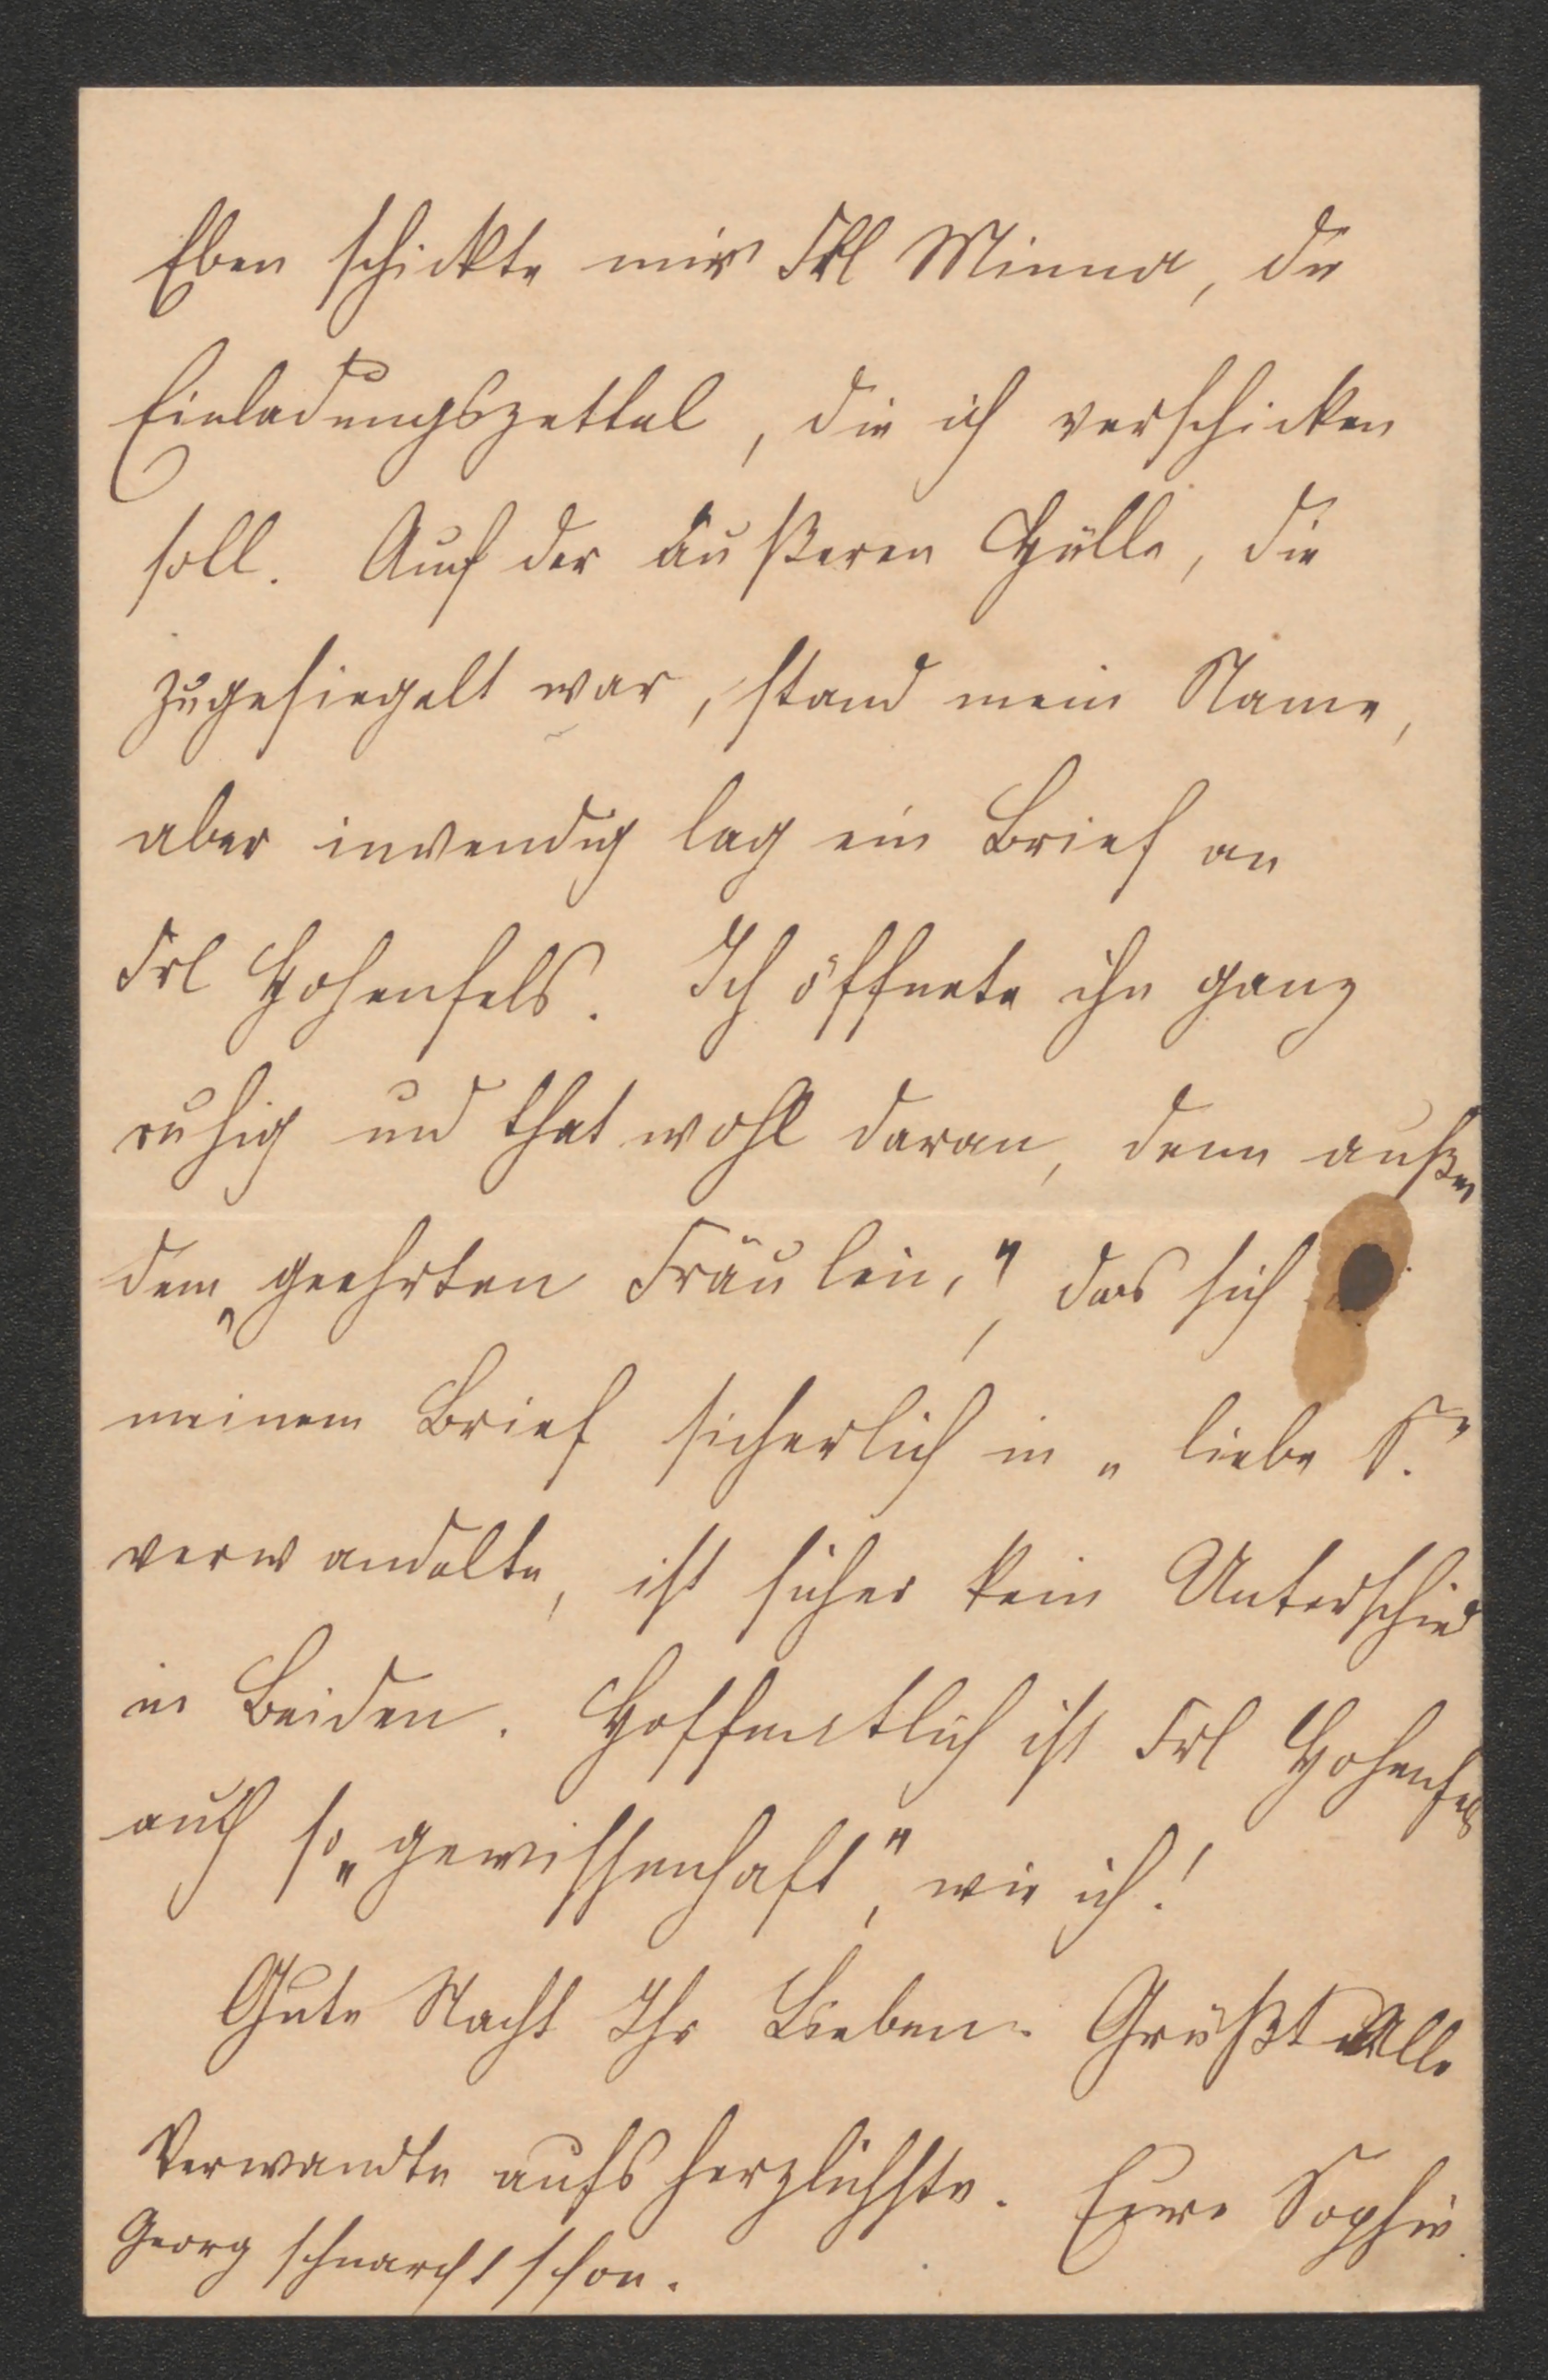 Eben schickte mir Frl Minna, die
Einladungszettel, die ich verschicken
soll. Auf der äußeren Hülle, die
zugesiegelt war, stand mein Name,
aber inwendig lag ein Brief an
Frl Hohenfels. Ich öffnete ihn ganz
ruhig und that wohl daran, denn außer
dem „geehrten Fräulein,", das sich
meinem Brief sicherlich in „liebe S."
verwandelte, ist sicher kein Unterschied
in Beiden. Hoffentlich ist Frl Hohenfels
auch so „gewissenhaft", wie ich!
Gute Nacht Ihr Lieben. Grüßt Alle
Verwandte aufs herzlichste. Eure Sophie.
Georg schnarcht schon.